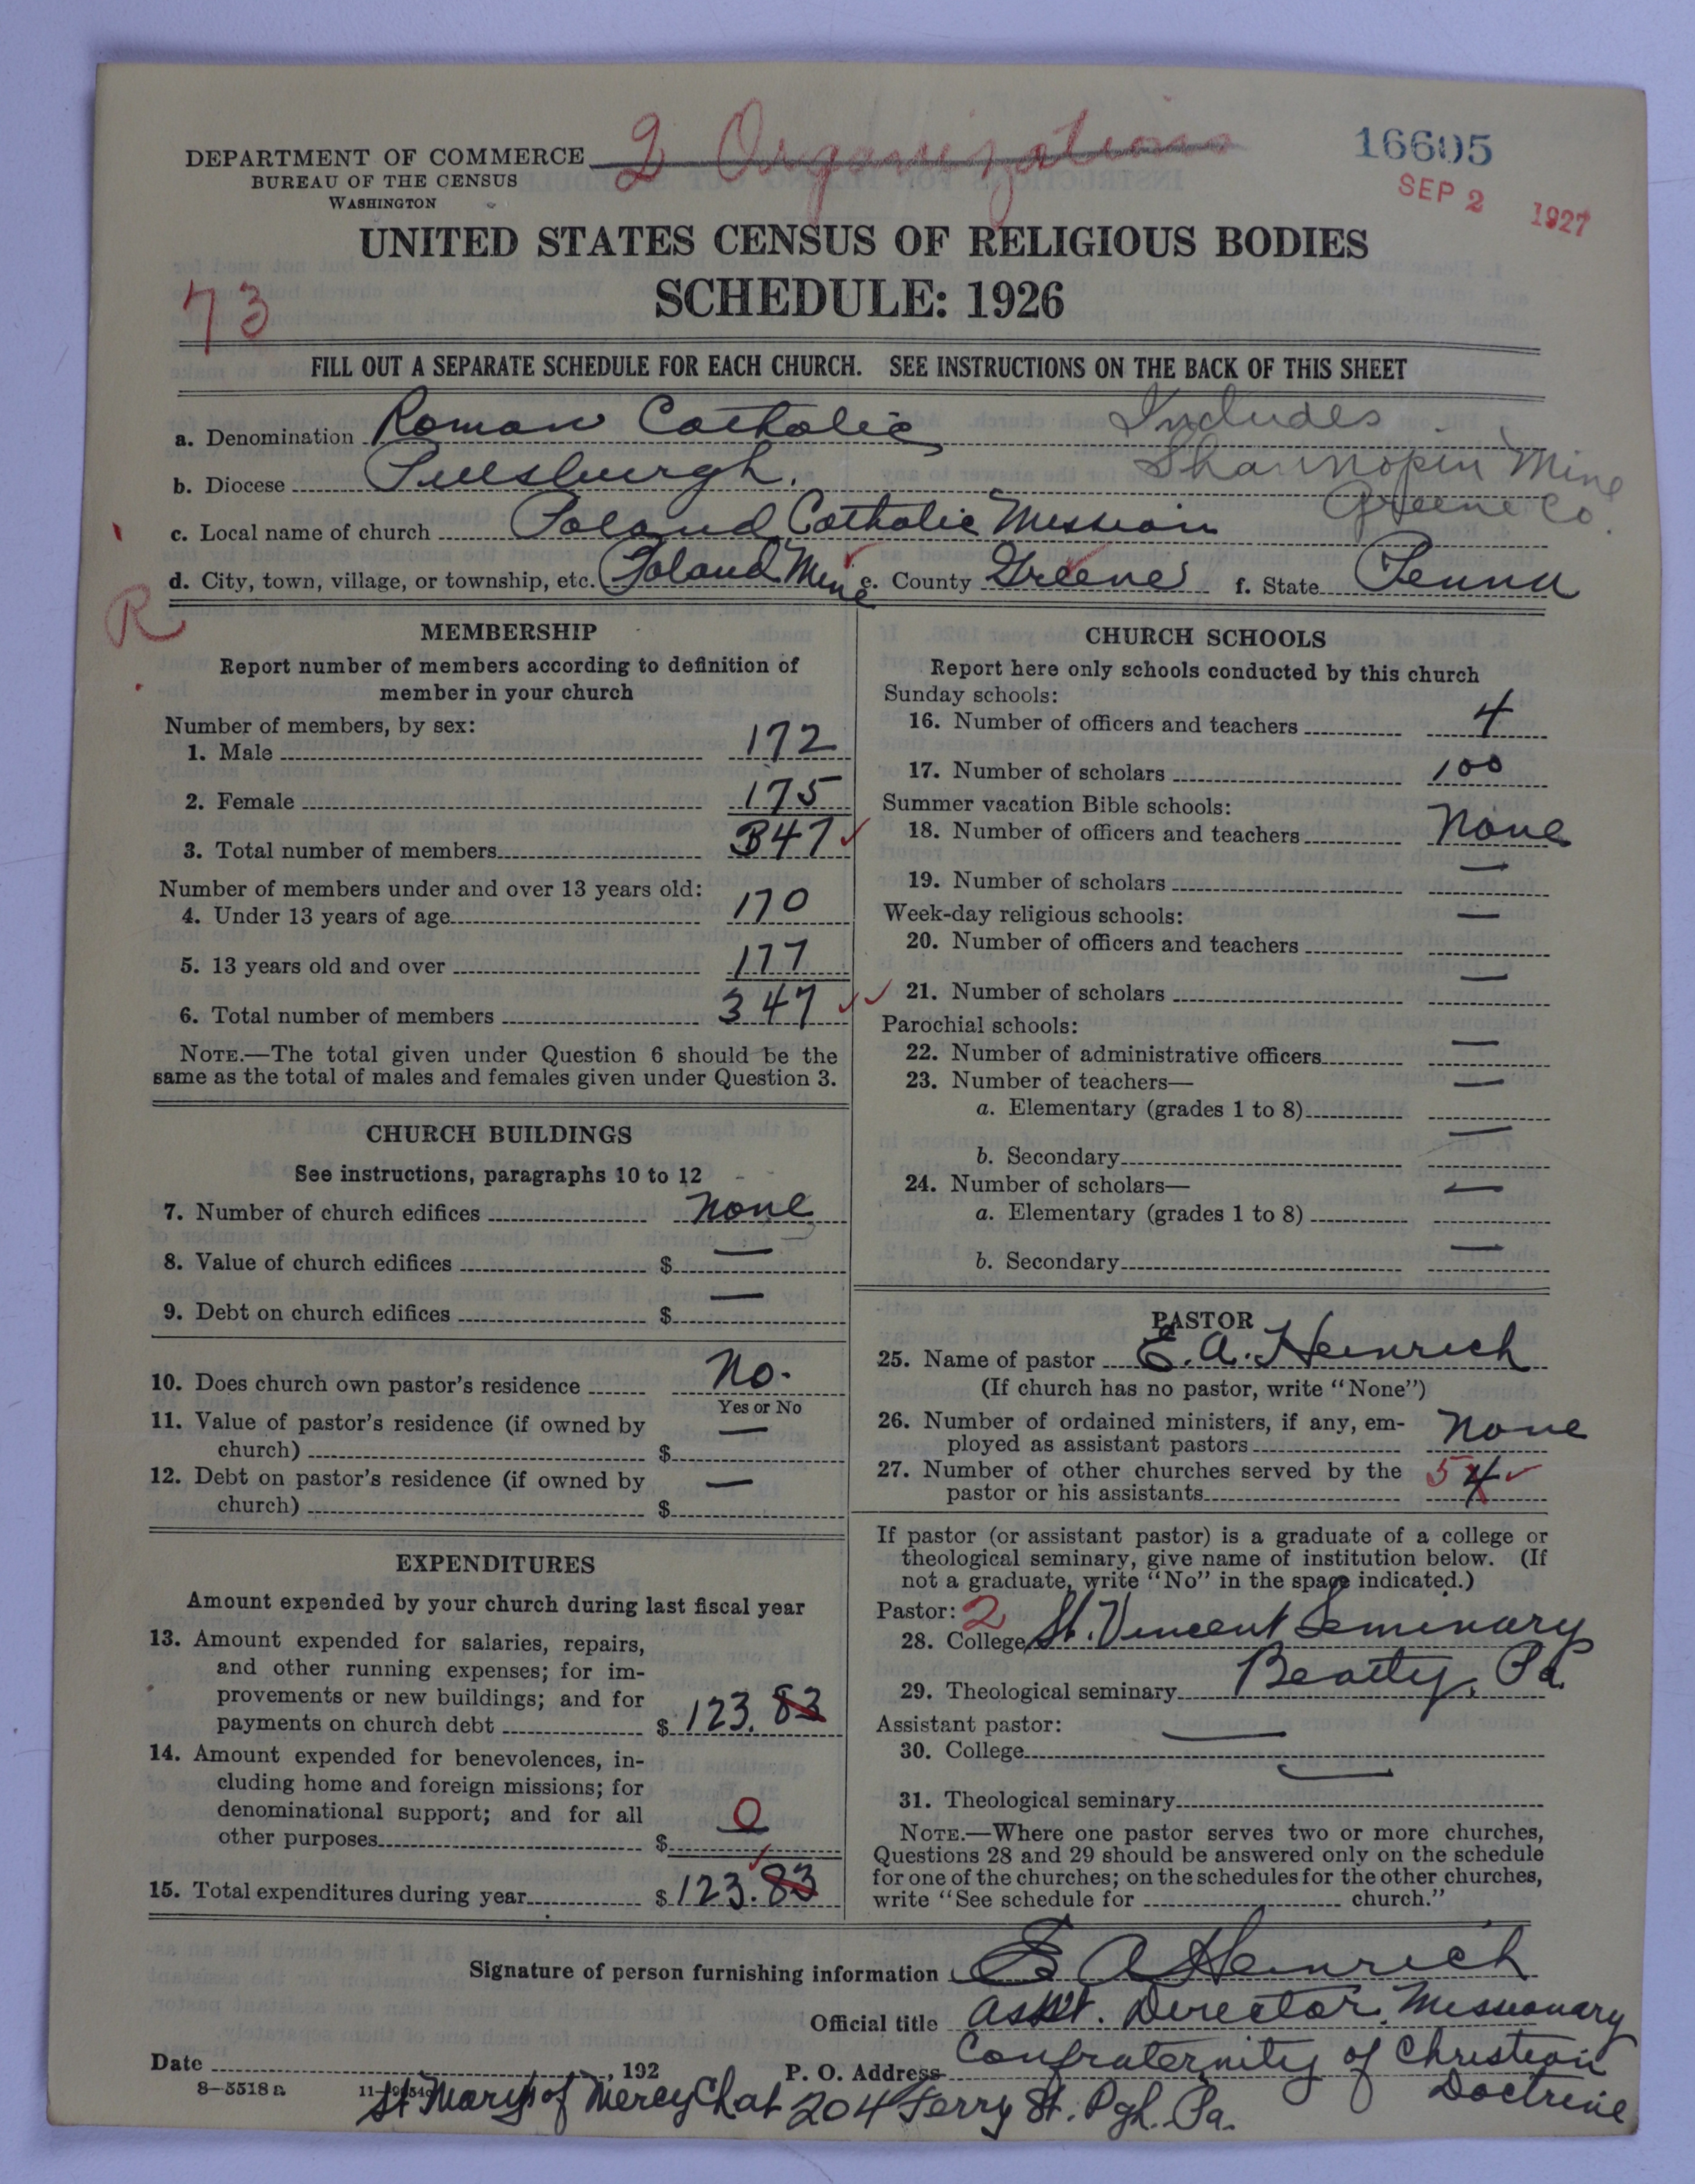 DEPARTMENT OF COMMERCE
BUREAU OF THE CENSUS
WASHINGTON
2 Organizations
16605
SEP 2 1927
UNITED STATES CENSUS OF RELIGIOUS BODIES
SCHEDULE: 1926
73
FILL OUT A SEPARATE SCHEDULE FOR EACH CHURCH. SEE INSTRUCTIONS ON THE BACK OF THIS SHEET
a. Denomination Roman Catholic
Includes
b. Diocese Pittsburgh.
Shannopin Mine
Greene Co.
c. Local name of church Poland Catholic Mission
d. City, town, village, or township, etc. Poland Mine e. County Greene f. State Penna
R
MEMBERSHIP
Report number of members according to definition of
member in your church
Number of members, by sex:
1. Male 172
2. Female 175
3. Total number of members 347
Number of members under and over 13 years old:
4. Under 13 years of age 170
5. 13 years old and over 177
6. Total number of members 347
NOTE.—The total given under Question 6 should be the
same as the total of males and females given under Question 3.
CHURCH BUILDINGS
See instructions, paragraphs 10 to 12
7. Number of church edifices none
8. Value of church edifices $ —
9. Debt on church edifices $ —
10. Does church own pastor's residence No.
Yes or No
11. Value of pastor's residence (if owned by
church) $ —
12. Debt on pastor's residence (if owned by
church) $ —
EXPENDITURES
Amount expended by your church during last fiscal year
13. Amount expended for salaries, repairs,
and other running expenses; for im-
provements or new buildings; and for
payments on church debt $ 123.83
14. Amount expended for benevolences, in-
cluding home and foreign missions; for
denominational support; and for all
other purposes $ 0
15. Total expenditures during year $ 123.83
CHURCH SCHOOLS
Report here only schools conducted by this church
Sunday schools:
16. Number of officers and teachers 4
17. Number of scholars 100
Summer vacation Bible schools:
18. Number of officers and teachers None
19. Number of scholars —
Week-day religious schools:
20. Number of officers and teachers —
21. Number of scholars —
Parochial schools:
22. Number of administrative officers —
23. Number of teachers—
a. Elementary (grades 1 to 8) —
b. Secondary —
24. Number of scholars—
a. Elementary (grades 1 to 8) —
b. Secondary —
PASTOR
25. Name of pastor E. A. Heinrich
(If church has no pastor, write "None")
26. Number of ordained ministers, if any, em-
ployed as assistant pastors None
27. Number of other churches served by the
pastor or his assistants 5 4
If pastor (or assistant pastor) is a graduate of a college or
theological seminary, give name of institution below. (If
not a graduate, write "No" in the space indicated.)
Pastor: 2
28. College St. Vincent Seminary
29. Theological seminary Beatty, Pa.
Assistant pastor:
30. College —
31. Theological seminary —
NOTE.—Where one pastor serves two or more churches,
Questions 28 and 29 should be answered only on the schedule
for one of the churches; on the schedules for the other churches,
write "See schedule for church."
Signature of person furnishing information E A Heinrich
Official title Asst. Director. Missionary
Confraternity of Christian
Doctrine
Date , 192 P. O. Address
8—5518 a
St Marys of Mercy Chat 204 Ferry St. Pgh. Pa.